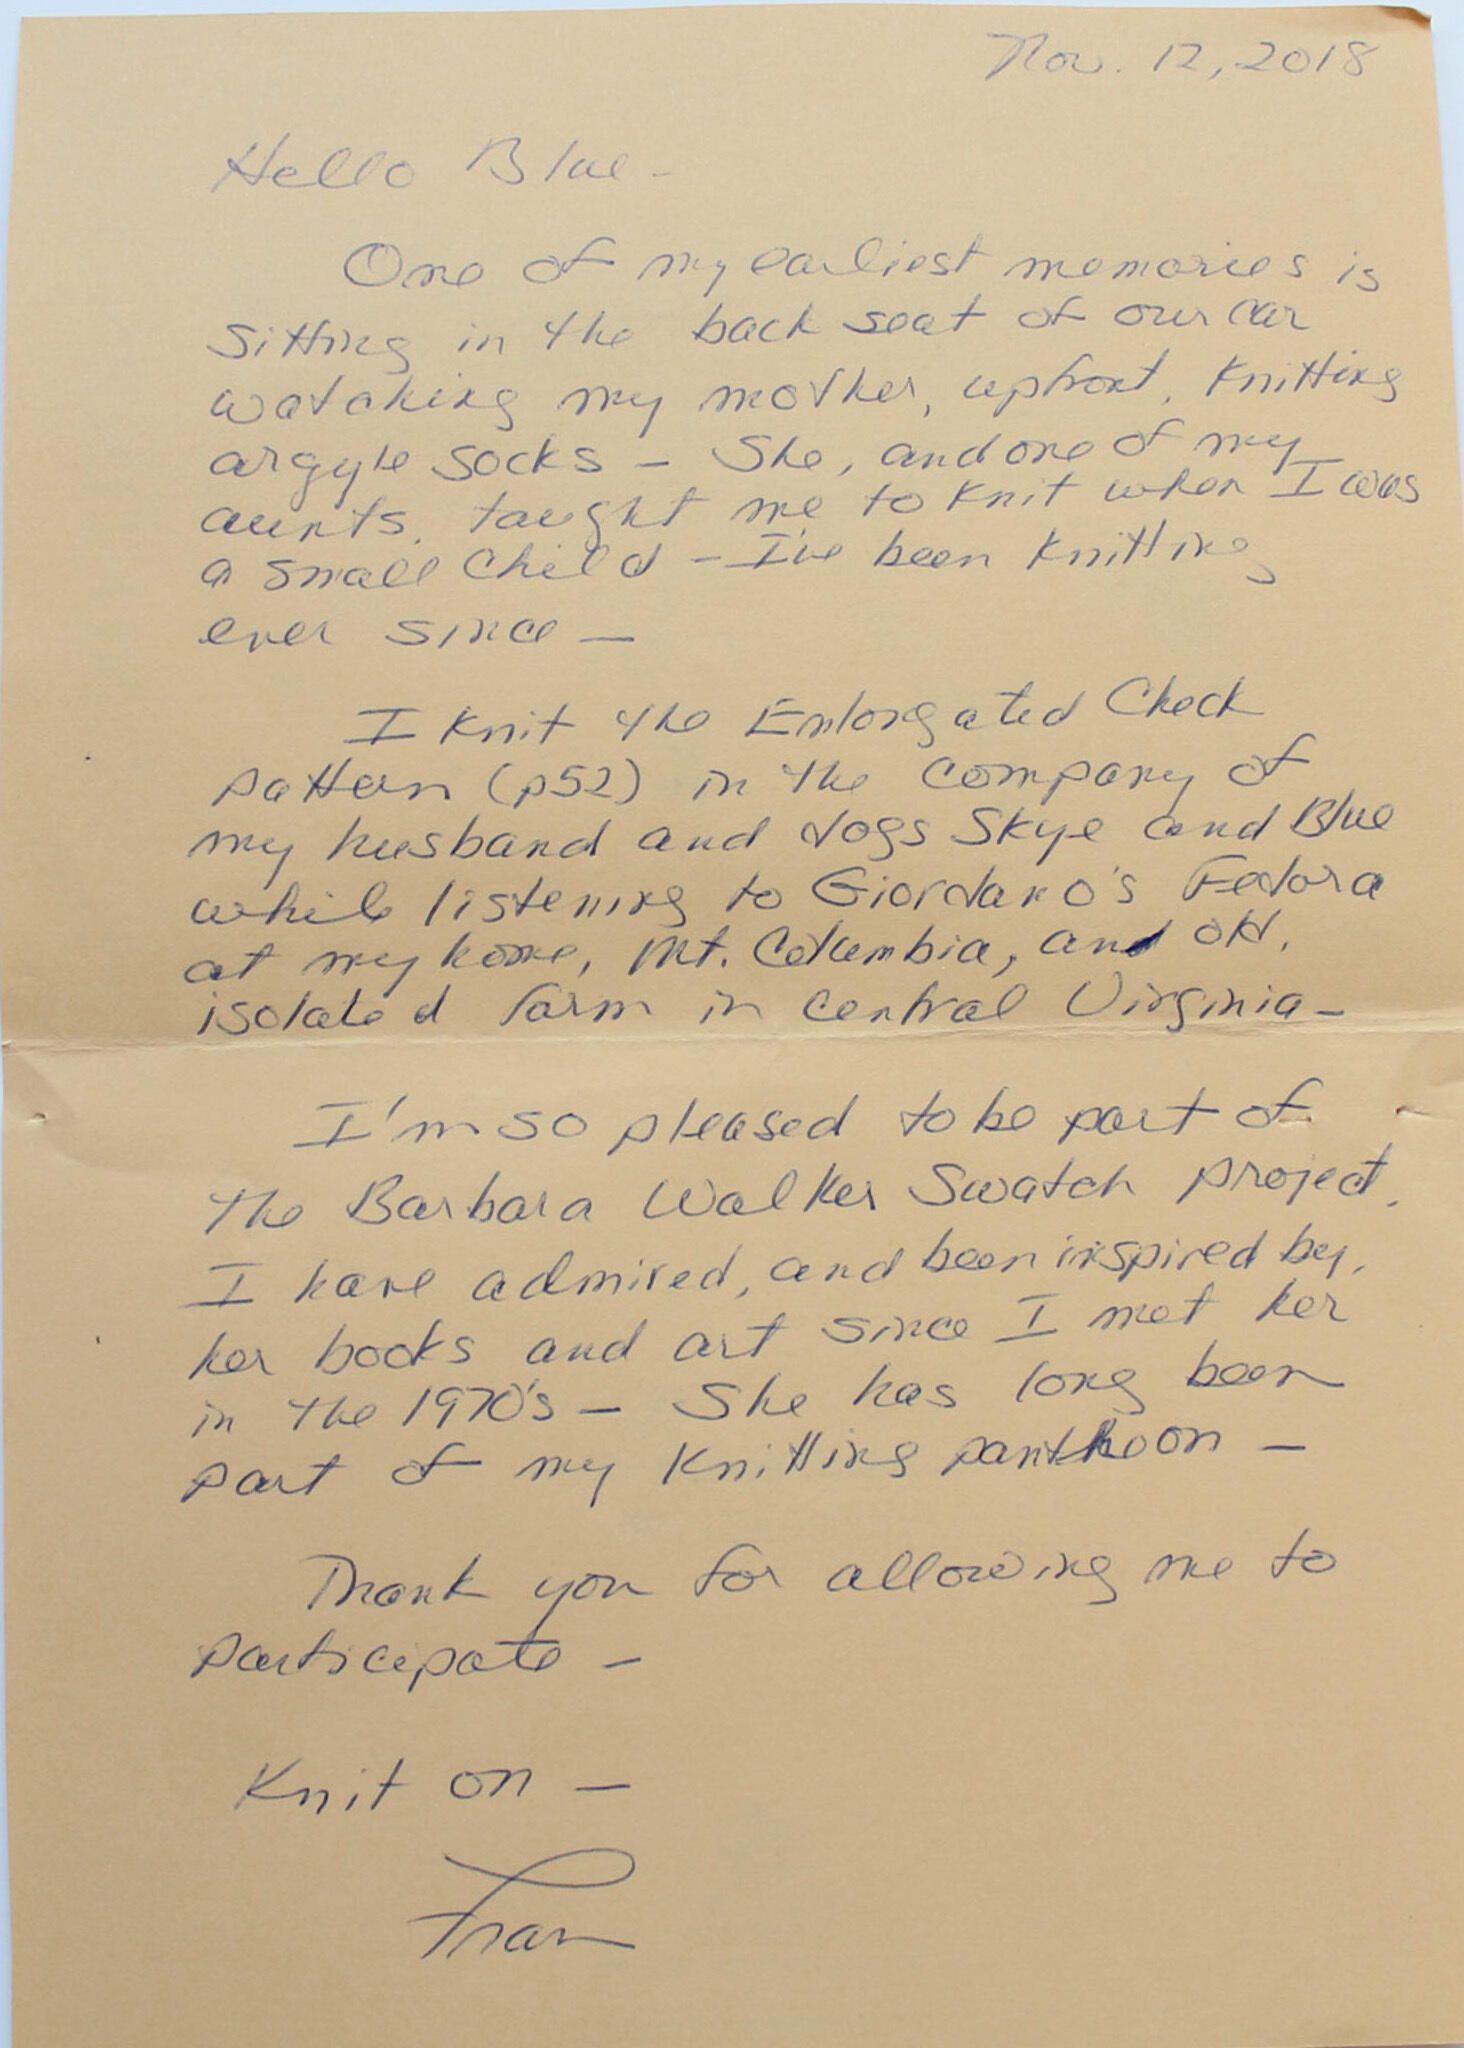 Nov. 12, 2018
Hello Blue -
One of my earliest memories is
sitting in the back seat of our car
watching my mother, upfront, knitting
argyle socks - She, and one of my
aunts, taught me to knit when I was
a small child - I've been knitting
ever since -
I knit the Enlongated Check
pattern (p52) in the company of
my husband and dogs Skye and Blue
while listening to Giordano's Fedora
at my home, Mt. Columbia, and old,
isolated farm in central Virginia -
I'm so pleased to be part of
the Barbara Walker Swatch project.
I have admired, and been inspired by,
her books and art since I met her
in the 1970's - She has long been
part of my knitting pantheon -
Thank you for allowing me to
participate -
Knit on -
Fran